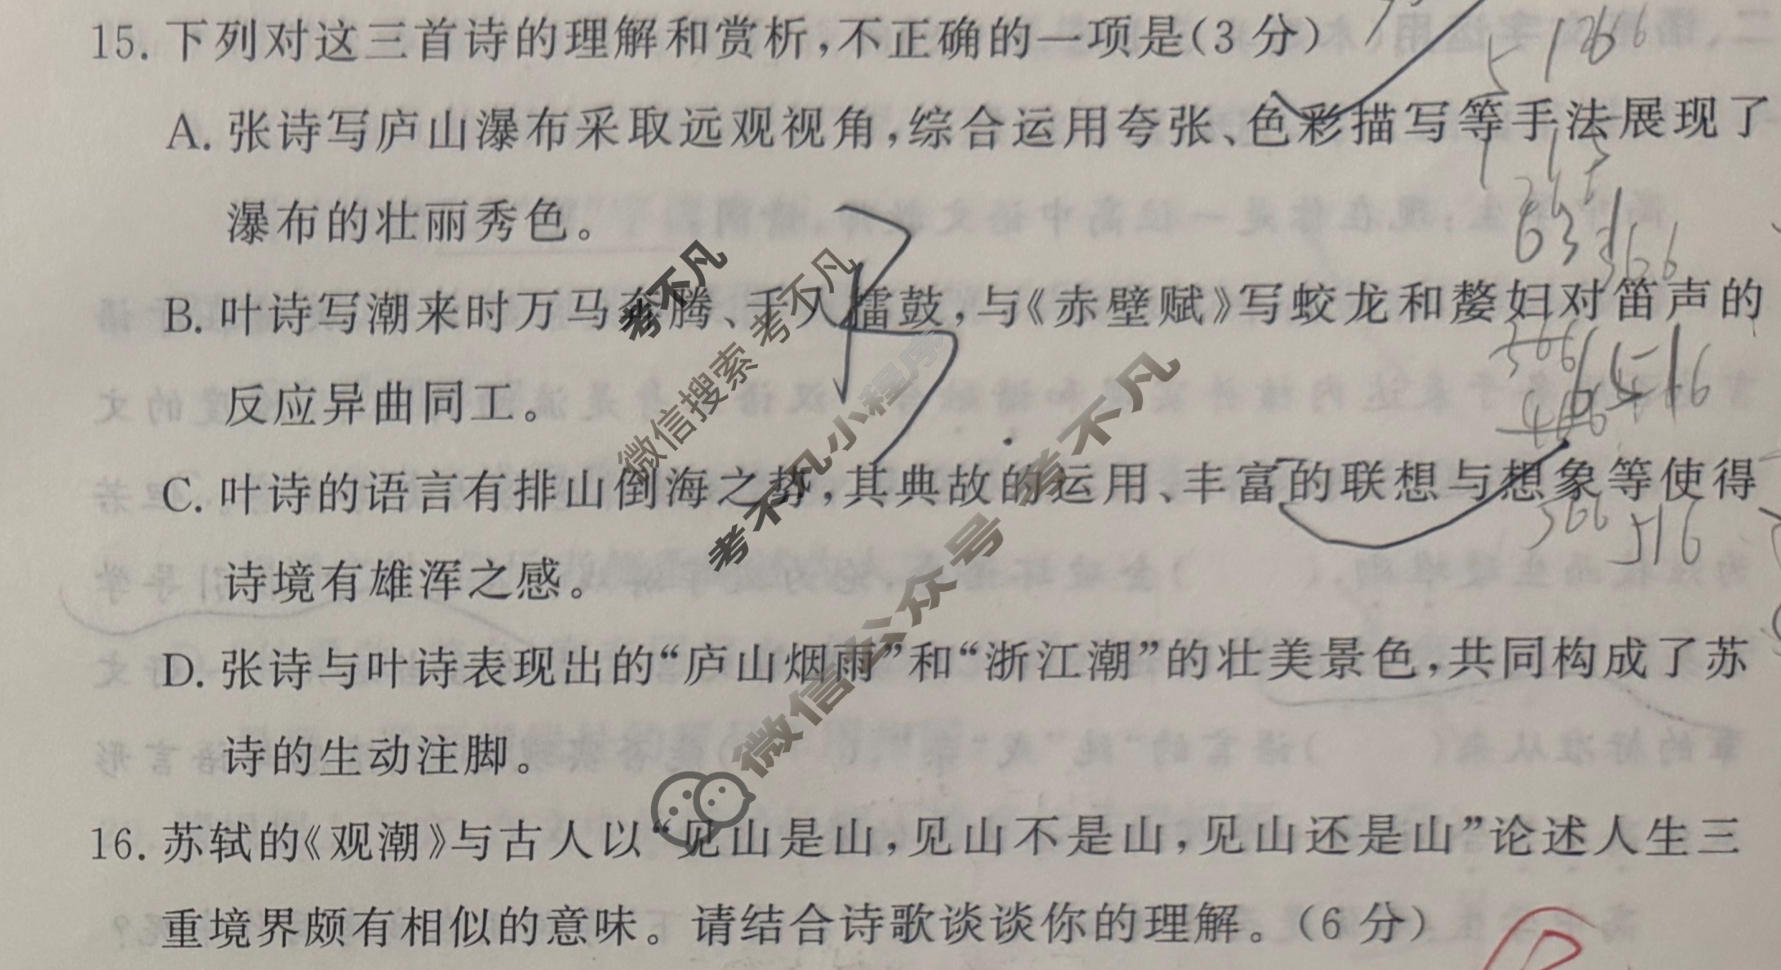 15. 下列对这三首诗的理解和赏析,不正确的一项是(3 分)
A. 张诗写庐山瀑布采取远观视角,综合运用夸张、色彩描写等手法展现了
瀑布的壮丽秀色。
B. 叶诗写潮来时万马奔腾、千人擂鼓,与《赤壁赋》写蛟龙和嫠妇对笛声的
反应异曲同工。
C. 叶诗的语言有排山倒海之势,其典故的运用、丰富的联想与想象等使得
诗境有雄浑之感。
D. 张诗与叶诗表现出的“庐山烟雨”和“浙江潮”的壮美景色,共同构成了苏
诗的生动注脚。
16. 苏轼的《观潮》与古人以“见山是山,见山不是山,见山还是山”论述人生三
重境界颇有相似的意味。请结合诗歌谈谈你的理解。(6 分)
考不凡
考不凡
微信搜索
考不凡小程序
微信公众号 考不凡
516